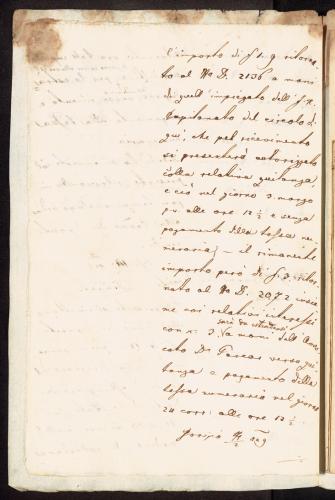 l'importo di f 1. 9 ritira-
to al No D. 2136 a mani
di quell'impiegato dell' I. R.
Capitanato del circolo di
qui, che pel ricevimento
si presenterà autorizzato
colla relativa quitanza,
e ciò nel giorno 3. marzo
pv. alle ore 12 ½ e senza
pagamento della tassa nu-
meraria; — il rimanente
importo però di f. 3.
al No D. 2072 insie-
me coi relativi interessi
sarà da
con x. 3. a mani dell' Avvo-
cato Dr verso qui-
tanza e pagamento della
tassa numeraria nel giorno
24 corr. alle ore 12 ½.